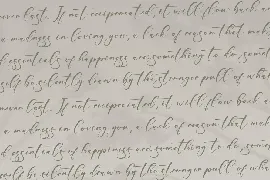 never lost. If not reciprocated, it will flow back a
a madness in loving you, a lack of reason that mak
d essentials of happiness are: something to do, somet
self be silently drawn by the stronger pull of what
never lost. If not reciprocated, it will flow back a
a madness in loving you, a lack of reason that mak
d essentials of happiness are: something to do, some
self be silently drawn by the stronger pull of what